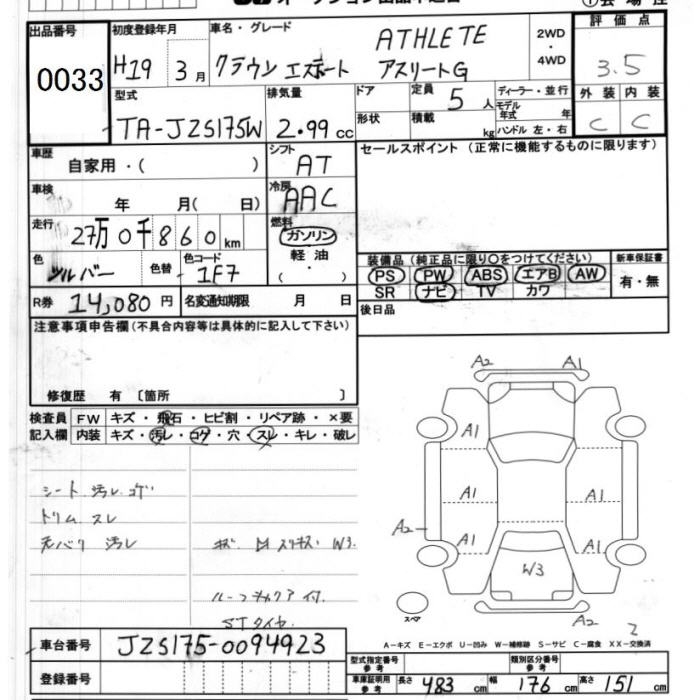 出品番号 0033
初度登録年月 H19 3月
車名・グレード クラウン エステート ATHLETE アスリートG
2WD・4WD
評価点 3.5
型式 TA-JZS175W
排気量 2.99 cc
ドア 形状
定員 5人
積載 kg
ディーラー・並行
モデル年式 年
ハンドル 左・右
外装 C 内装 C
車歴 自家用・( )
シフト AT
セールスポイント (正常に機能するものに限ります)
車検 年 月( 日)
冷房 AAC
走行 27万0千860km
燃料 ガソリン・軽油・( )
色 シルバー 色替 色コード 1F7
装備品 (純正品に限り○をつけてください) 新車保証書
PS PW ABS エアB AW 有・無
SR ナビ TV カワ
R券 14,080円 名変通知期限 月 日
後日品
注意事項申告欄(不具合内容等は具体的に記入して下さい)
修復歴 有 〔箇所 〕
検査員 FW キズ・飛石・ヒビ割・リペア跡・×要
記入欄 内装 キズ・汚レ・コゲ・穴・スレ・キレ・破レ
シート 汚レ.コゲ
トリム スレ
天バリ 汚レ
W3.
ルーフキャリア付.
STタイヤ
A2 A1
A1
A1 A1
A2
A1 A1
W3
スペア
A2
2
A-キズ E-エクボ U-凹み W-補修跡 S-サビ C-腐食 XX-交換済
車台番号 JZS175-0094923
登録番号
型式指定番号 参考 類別区分番号 参考
車庫証明用 参考 長さ 483cm 幅 176cm 高さ 151cm